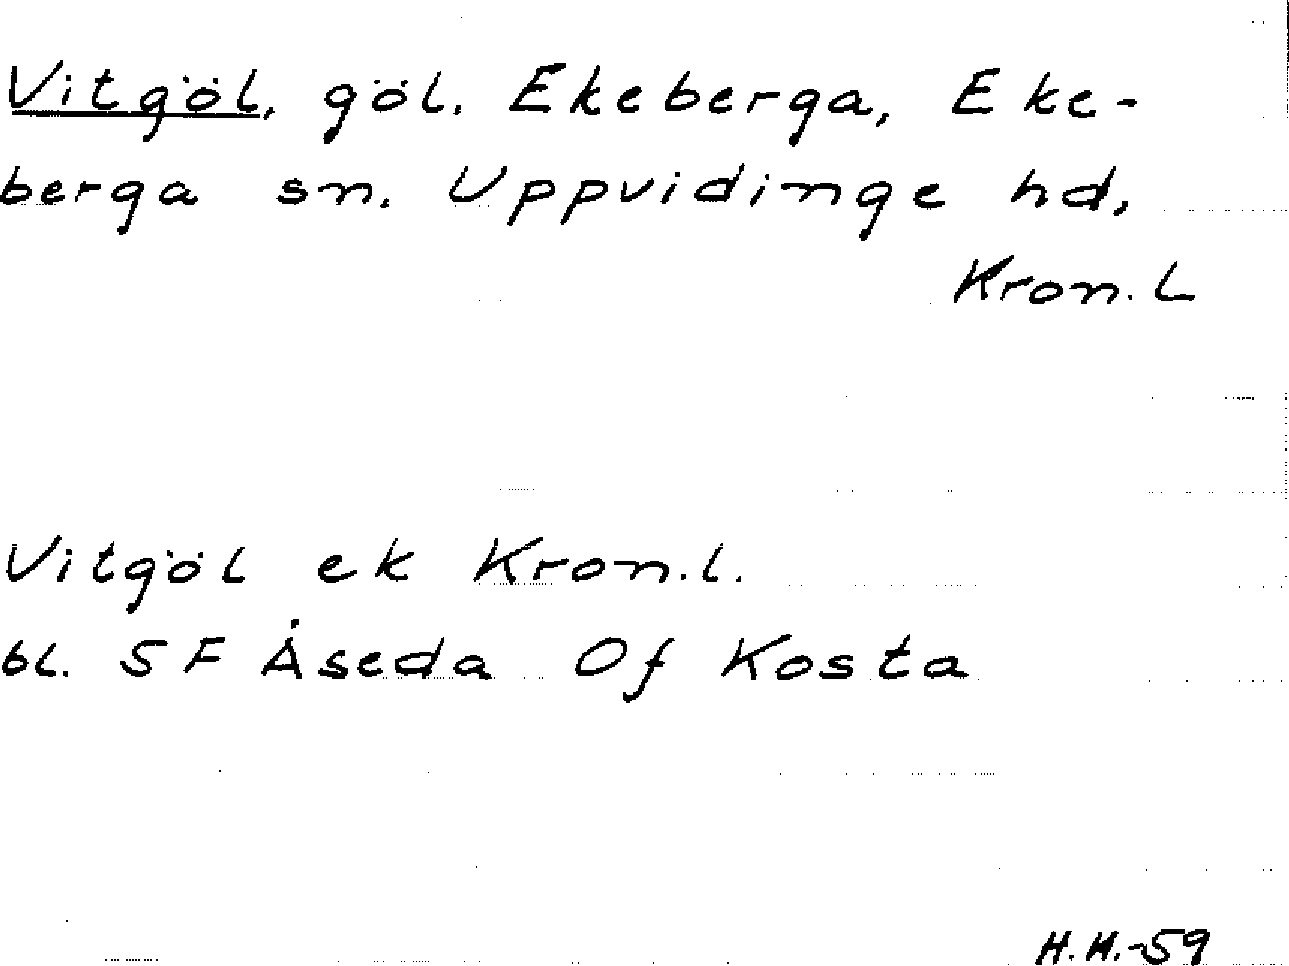 Vitgöl, göl. Ekeberga, Eke-
berga sn. Uppvidinge hd,
Kron. L
Vitgöl ek Kron.l.
bl. 5 F Åseda Of Kosta
H.H.-59